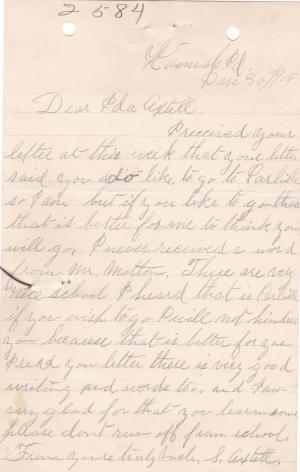 2584
Kamiah Id.
Jan 30/15
Dear Ida Axtell.
I received your
letter at this week that your letter
said you do like to go to Carlisle
so I am but if you like to go there
that is better for me to think you
will go, I never received a word
from Mr. Matton. There are very
nice school I heard that is Carlisle
if you wish to go I will not hinder
you because that is better for you
I read you letter there is very good
writing and words too, and I am
very glad for that you learn some
please dont run off from school.
From yours truly uncle, S. Axtell.